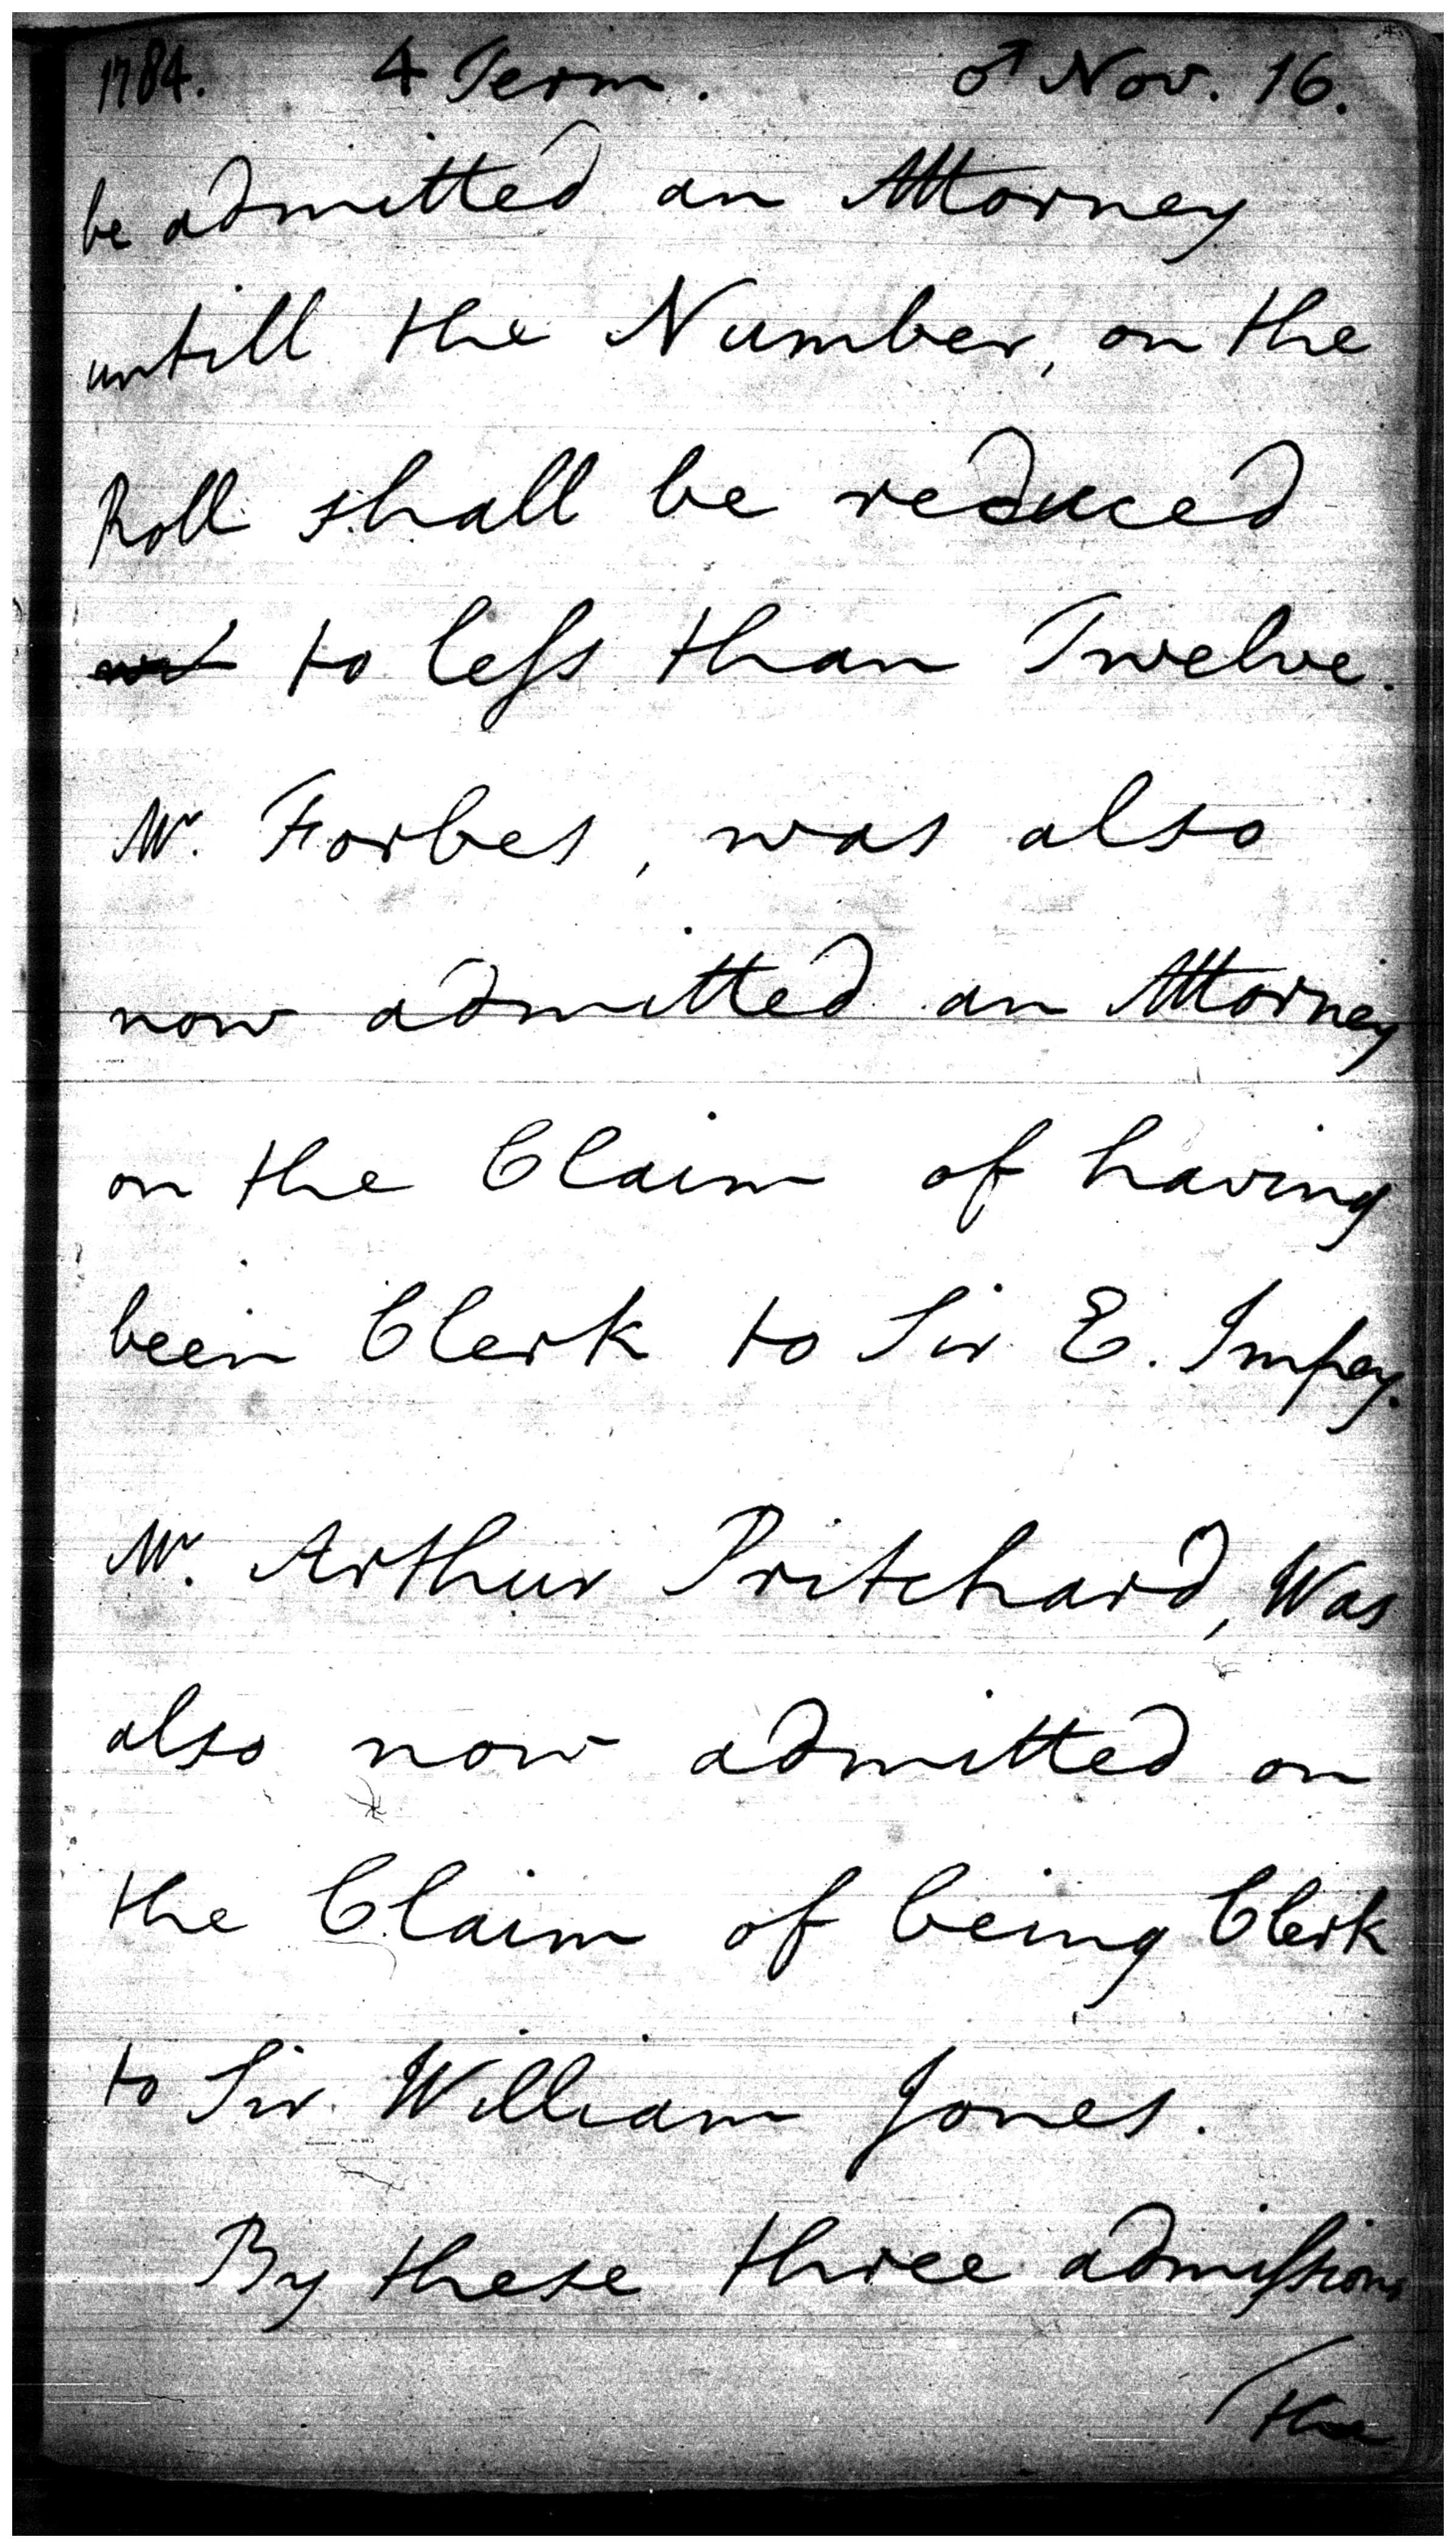 1784. 4 Term. ♂ Nov. 16.
be admitted an Attorney
untill the Number, on the
Roll shall be reduced
to leſs than Twelve.
Mr. Forbes, was also
now admitted an Attorney
on the Claim of having
been Clerk to Sir E. Impey.
Mr. Arthur Pritchard, Was
also now admitted on
the Claim of being Clerk
to Sir William Jones.
By these three admiſsions
(the